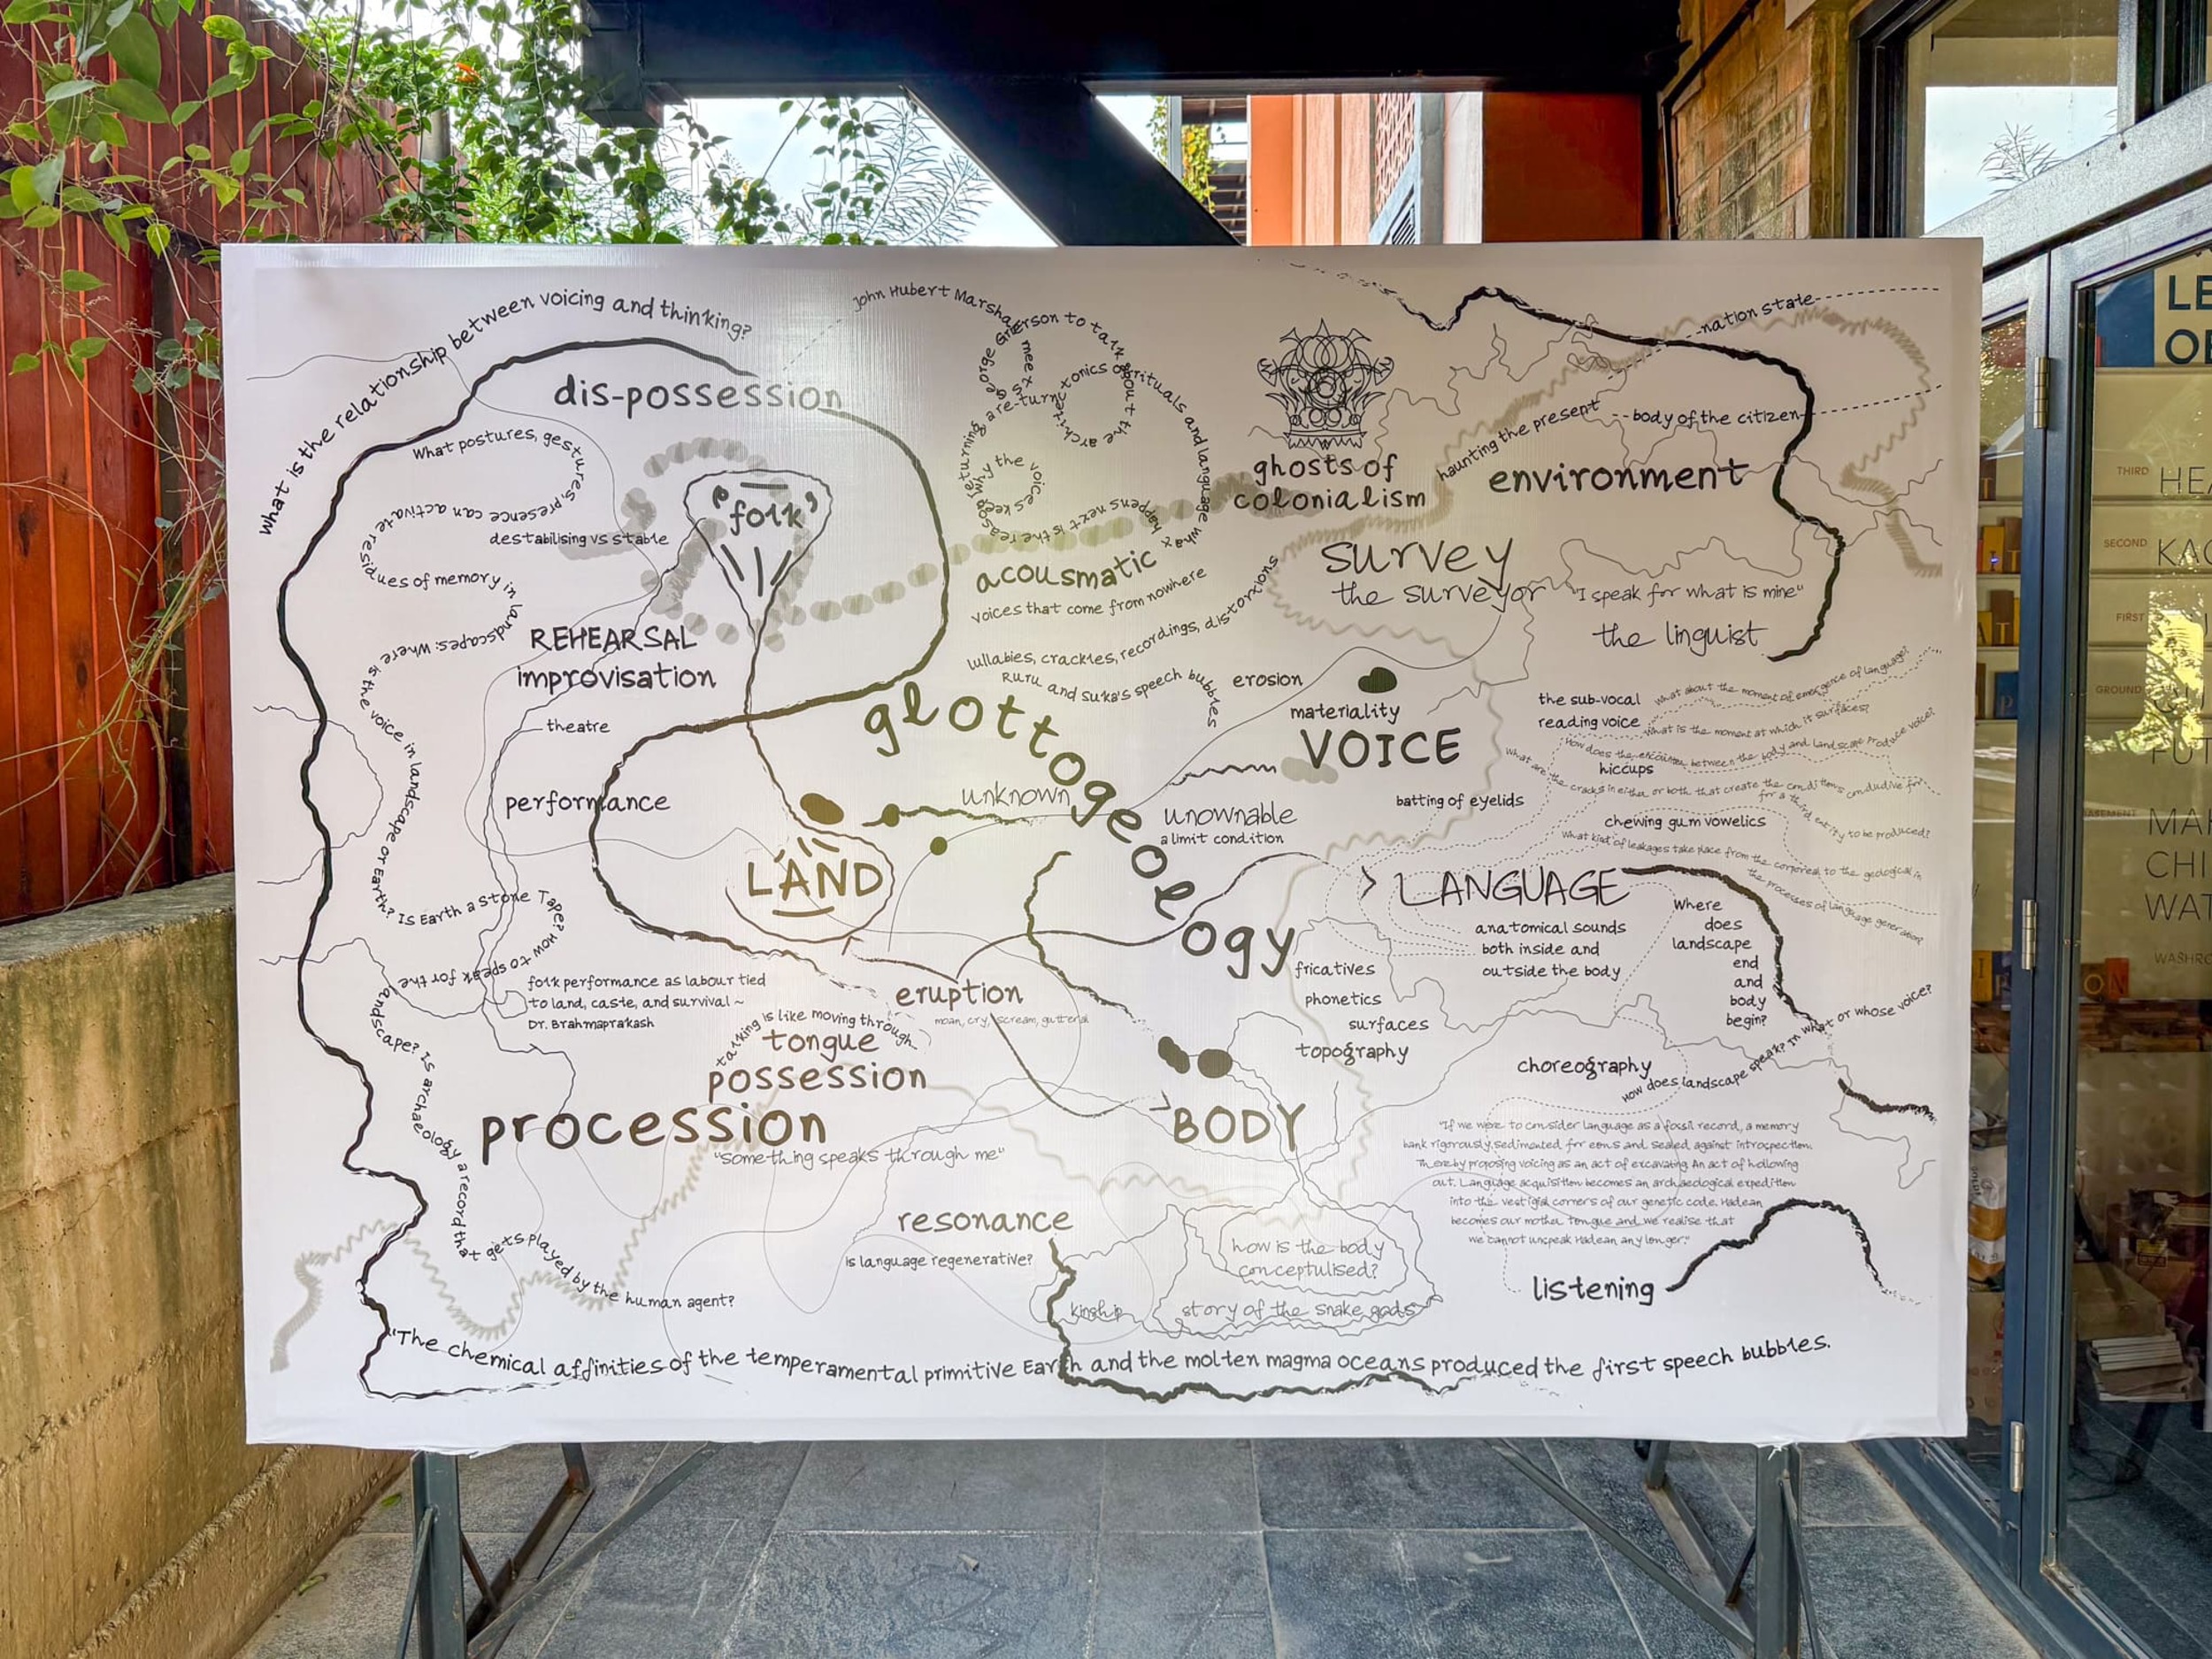 what is the relationship between voicing and thinking?
dis-possession
What postures, gestures, presence can activate residues of memory in landscapes: Where is the voice in landscape or earth? Is Earth a Stone Tape? How to speak for the landscape? Is archaeology a record that gets played by the human agent?
destabilising vs stable
"folk"
REHEARSAL
improvisation
theatre
performance
LAND
folk performance as labour tied
to land, caste, and survival ~
Dr. Brahmaprakash
talking is like moving through
tongue
possession
procession
"something speaks through me"
eruption
moan, cry, scream, gutteral
resonance
is language regenerative?
John Hubert Marshall meets George Grierson to talk about the architectonics of rituals and language what happens next is the reason why the voices keep returning
acousmatic
voices that come from nowhere
lullabies, crackles, recordings, distortions
Ruru and Suka's speech bubbles
glottogeology
unknown
unownable
a limit condition
ghosts of
colonialism
haunting the present
nation state
body of the citizen
environment
survey
the surveyor
"I speak for what is mine"
the linguist
erosion
materiality
VOICE
batting of eyelids
the sub-vocal
reading voice
hiccups
chewing gum vowelics
What about the moment of emergence of language?
What is the moment at which it surfaces?
How does the encounter between the body and landscape produce voice?
What are the cracks in either or both that create the conditions condudive for
for a third entity to be produced?
What kind of leakages take place from the corporeal to the geological in
the processes of language generation?
LANGUAGE
anatomical sounds
both inside and
outside the body
Where
does
landscape
end
and
body
begin?
fricatives
phonetics
surfaces
topography
choreography
How does landscape speak? In what or whose voice?
BODY
how is the body
conceptulised?
kinship
story of the snake gods
"If we were to consider language as a fossil record, a memory
bank rigorously sedimented for eons and sealed against introspection.
Thereby proposing voicing as an act of excavating. An act of hollowing
out. Language acquisition becomes an archaeological expedition
into the vestigial corners of our genetic code. Hadean
becomes our mother tongue and we realise that
we cannot unspeak Hadean any longer."
listening
"The chemical affinities of the temperamental primitive Earth and the molten magma oceans produced the first speech bubbles.
LE
OF
THIRD
HEA
SECOND
KAC
FIRST
GROUND
FUT
BASEMENT
MAI
CHI
WAT
WASHRO